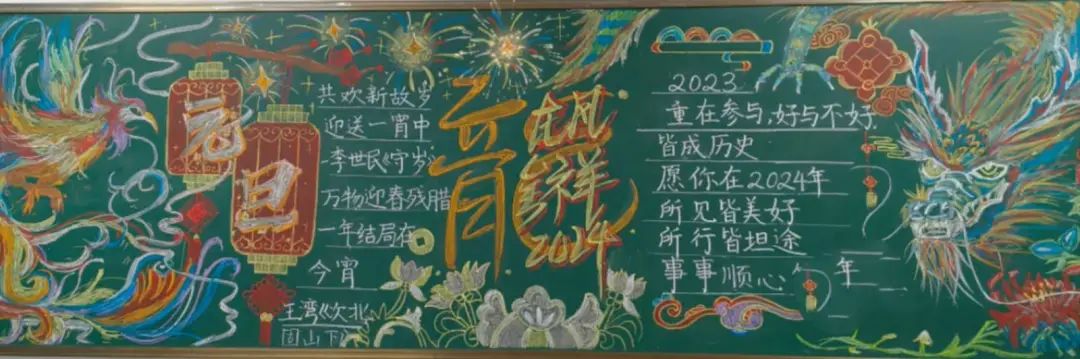 元旦
共欢新故岁
迎送一宵中
李世民《守岁》
万物迎春残腊
一年结局在
今宵
王湾《次北
固山下
龙凤
呈祥
2024
2023
重在参与,好与不好
皆成历史
愿你在2024年
所见皆美好
所行皆坦途
事事顺心